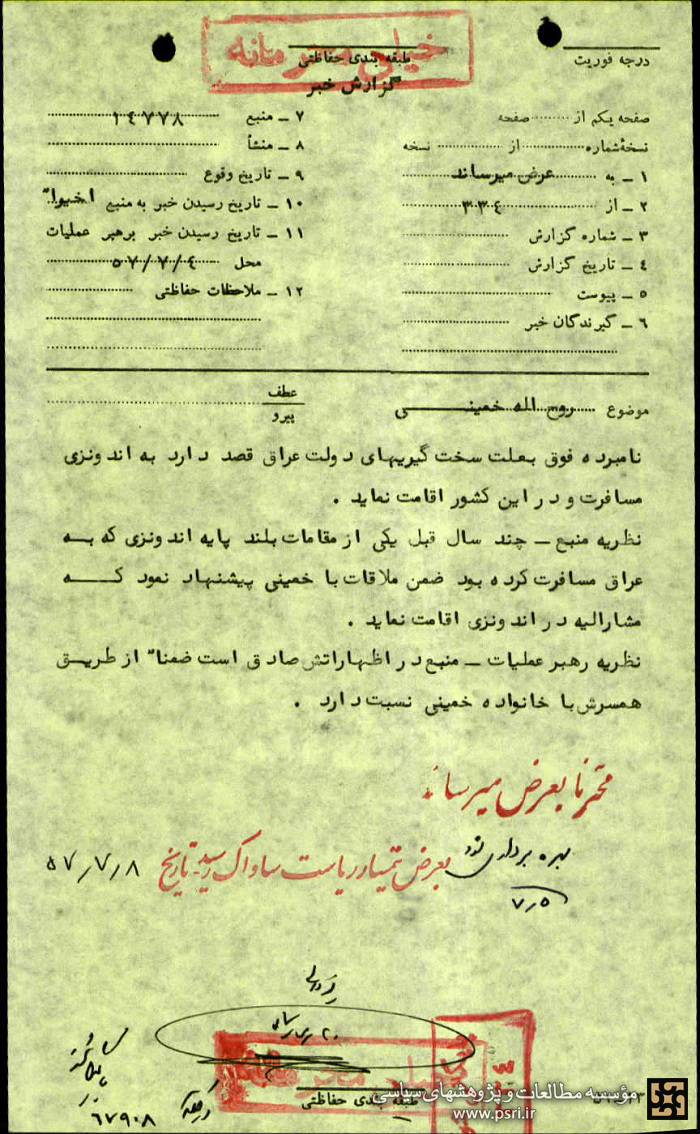 خیلی محرمانه
طبقه بندی حفاظتی
گزارش خبر
درجه فوریت
صفحه یکم از صفحه
نسخهٔ شماره از نسخه
۱ - به عرض میرساند
۲ - از ۳۳٤
۳ - شماره گزارش
٤ - تاریخ گزارش
۵ - پیوست
۶ - گیرندگان خبر
۷ - منبع ۱٤۷۷۸
۸ - منشأ
۹ - تاریخ وقوع
۱۰ - تاریخ رسیدن خبر به منبع اخیرا"
۱۱ - تاریخ رسیدن خبر برهبر عملیات
محل ۵۷/۷/٤
۱۲ - ملاحظات حفاظتی
موضوع روح اله خمینی
عطف
پیرو
نامبرده فوق بعلت سخت گیریهای دولت عراق قصد دارد به اندونزی
مسافرت و در این کشور اقامت نماید .
نظریه منبع - چند سال قبل یکی از مقامات بلند پایه اندونزی که به
عراق مسافرت کرده بود ضمن ملاقات با خمینی پیشنهاد نمود که
مشارالیه در اندونزی اقامت نماید .
نظریه رهبر عملیات - منبع در اظهاراتش صادق است ضمنا" از طریق
همسرش با خانواده خمینی نسبت دارد .
محترماً بعرض میرساند
بهره برداری شود
۷٫۵
بعرض تیمسار ریاست ساواک رسید تاریخ ۵۷٫۷٫۸
۶۷۹۰۸
خیلی محرمانه
طبقه بندی حفاظتی
مؤسسه مطالعات و پژوهشهای سیاسی
www.psri.ir